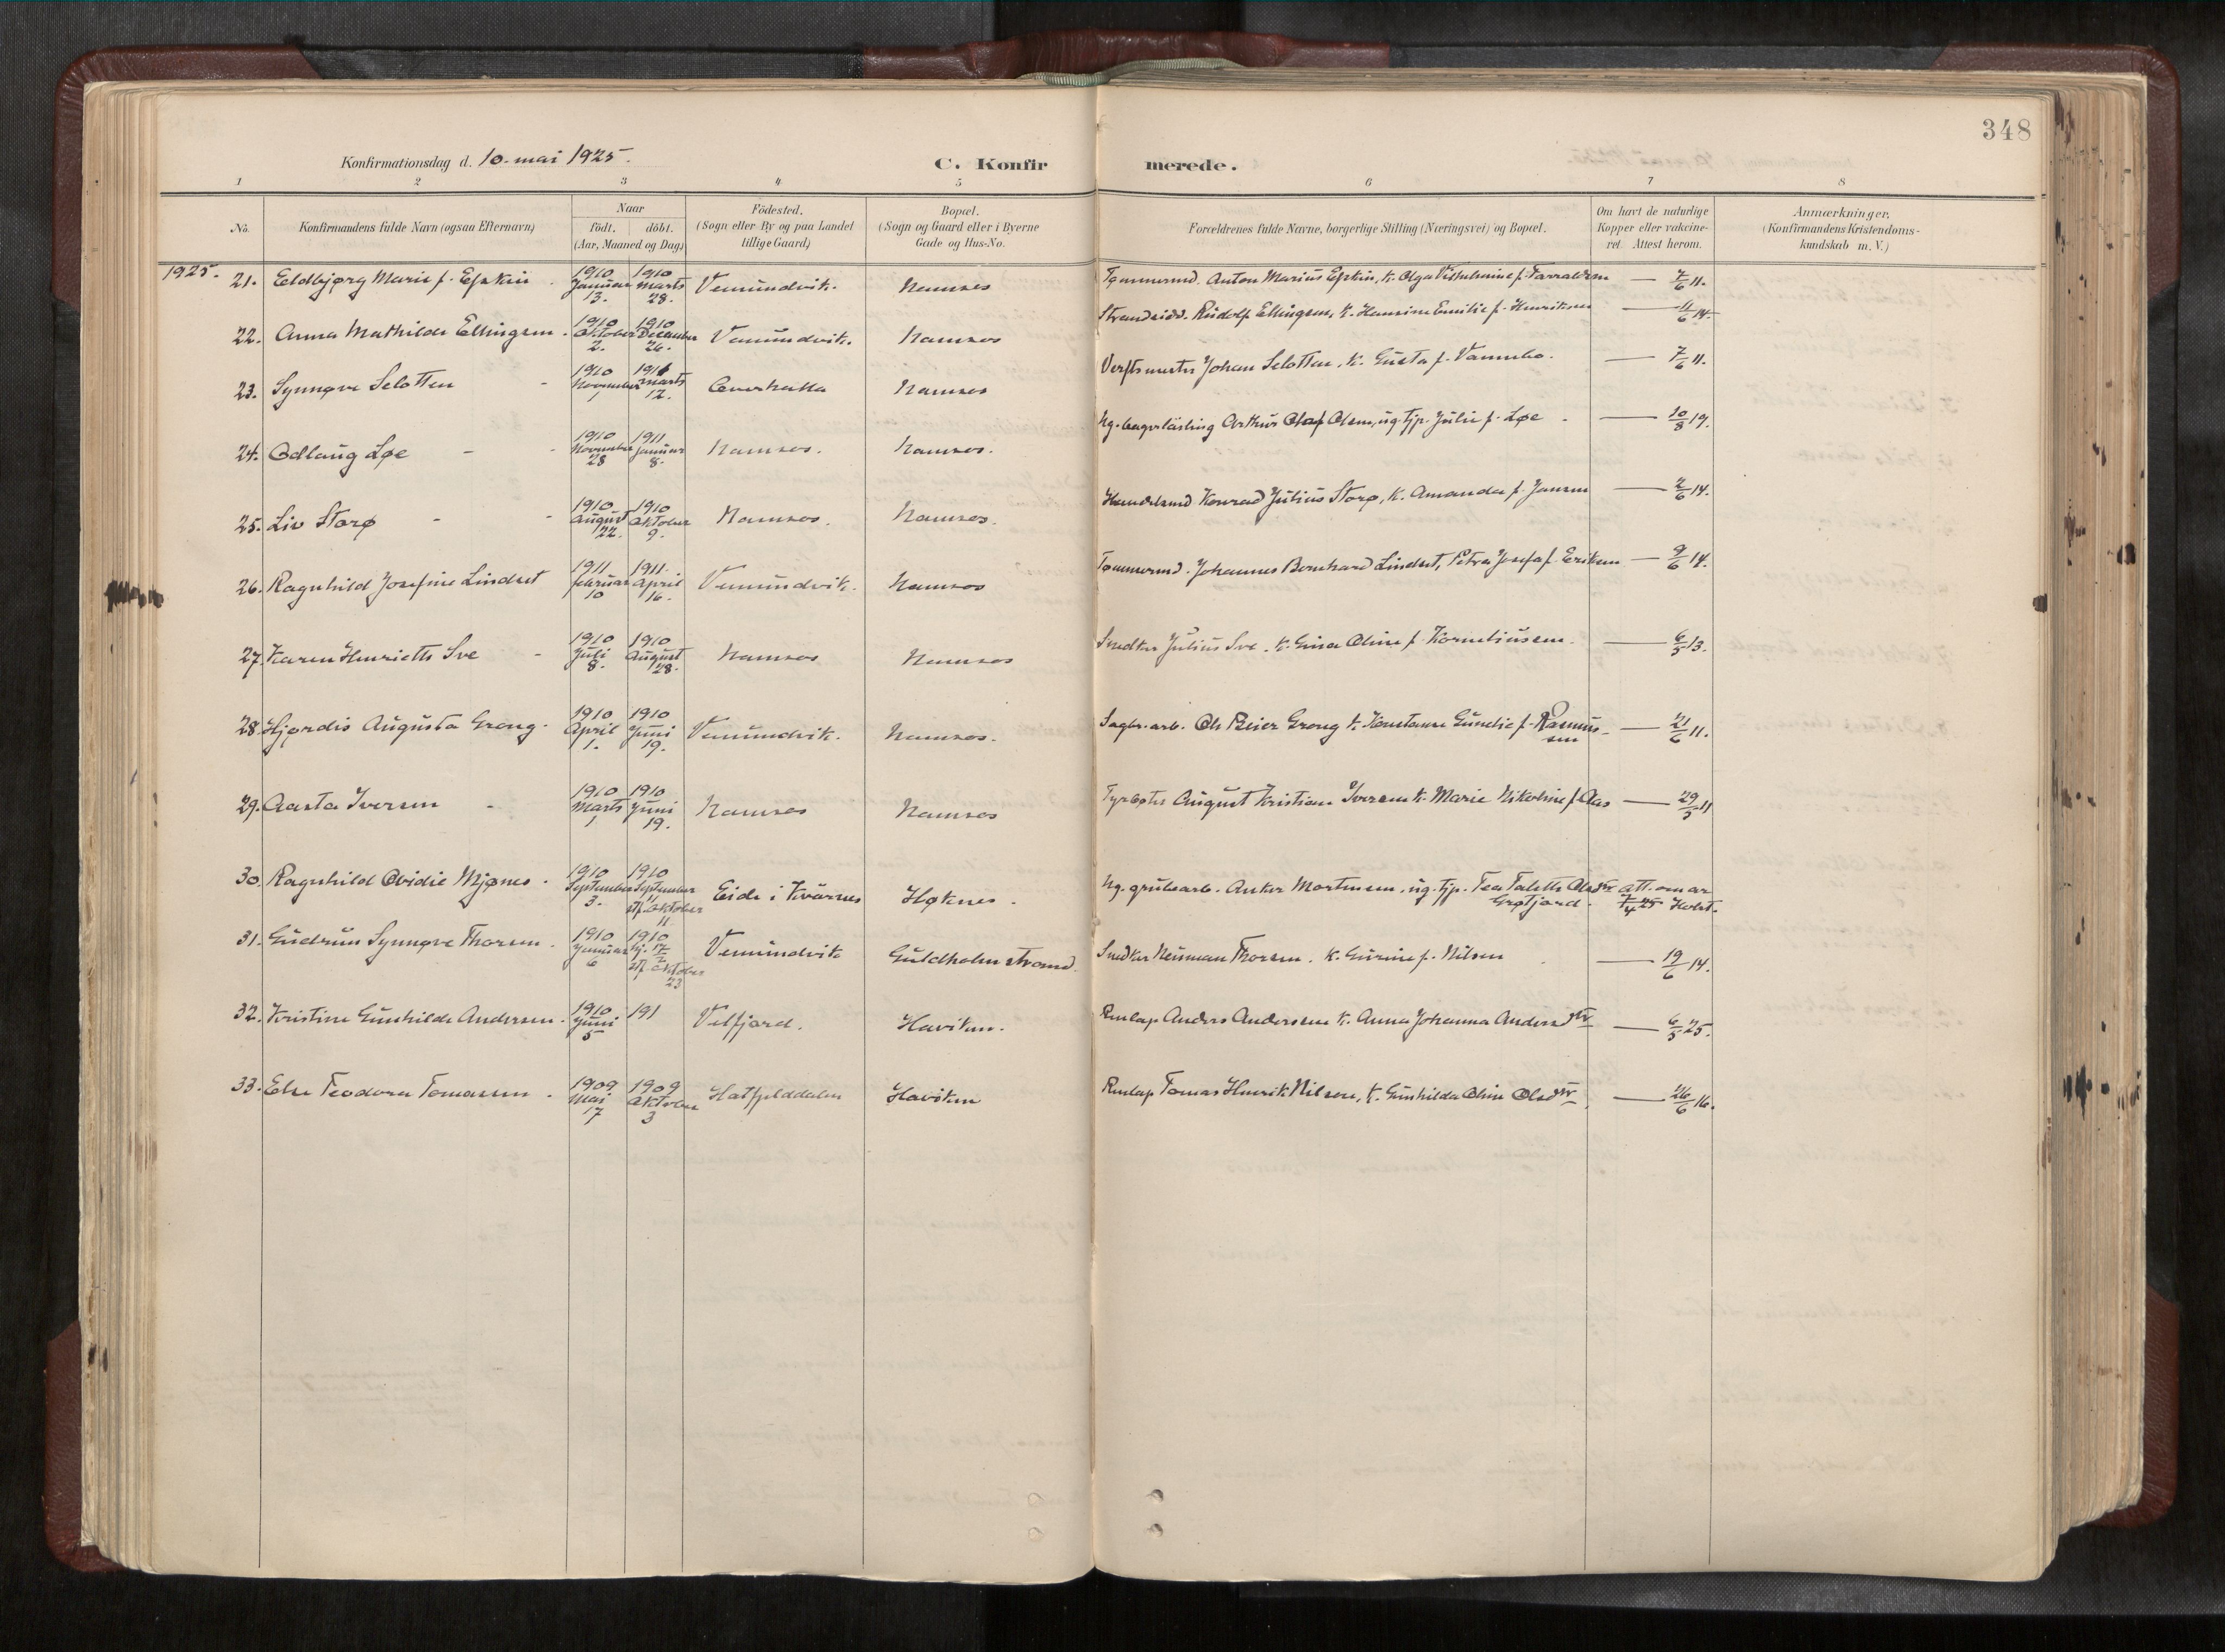 348
Konfirmationsdag d. 10. mai 1925.
C. Konfirmerede.
1 2 3 4 5 6 7 8
No.
Konfirmandens fulde Navn (ogsaa Efternavn)
Naar
født. døbt.
(Aar, Maaned og Dag)
Fødested.
(Sogn eller By og paa Landet
tillige Gaard)
Bopæl.
(Sogn og Gaard eller i Byerne
Gade og Hus-No.
Forældrenes fulde Navne, borgerlige Stilling (Næringsvei) og Bopæl.
Om havt de naturlige
Kopper eller vakcine-
ret. Attest herom.
Anmærkninger.
(Konfirmandens Kristendoms-
kundskab m. V.)
1925.
21. Eldbjørg Marie f. Espkin 1910 Januar 13. 1910 Marts 28. Vemundvik. Namsos Tømmermd. Anton Marius Espkin, k. Olga Vilhelmine f. Tarraldsen — 7/6 11.
22. Anna Mathilde Ellingsen. 1910 Oktober 2. 1910 December 26. Vemundvik. Namsos Strandsidd. Rudolf Ellingsen, k. Hansine Emilie f. Henriksen — 11/6 14.
23. Synnøve Selotten - 1910 November 1 1911 Marts 12. Overhalla Namsos Verftsmester Johan Selotten, k. Gusta f. f. Vannebo. — 7/6 11.
24. Odlaug Løe - - 1910 November 28 1911 Januar 8. Namsos. Namsos. Ug. bagerlærling Arthur Olaf Olsen, ug. tjp. Julie f. Løe — 10/8 19.
25. Liv Storø - - 1910 August 22. 1910 Oktober 9. Namsos. Namsos. Handelsmd. Konrad Julius Storø, k. Amanda f. Jansen — 2/6 14.
26. Ragnhild Josefine Lindset 1911 Februar 10 1911. April 16. Vemundvik. Namsos Tømmermd. Johannes Bernhard Lindset, Petra Josefa f. Eriksen — 9/6 14.
27. Karen Henriette Sve - 1910 Juli 8. 1910 August 28. Namsos Namsos Snedker Julius Sve. k. Gina Oline f. Korneliussen. — 6/5 13.
28. Hjørdis Augusta Grong. 1910 April 1. 1910 Juni 19. Vemundvik. Namsos. Sagbr. arb. Ole Peier Grong k. Konstanse Gunelie f. Rasmus-
sen — 21/6 11.
29. Aasta Iversen - 1910 Marts 1 1910 Juni 19. Namsos Namsos August Kristian Iversen k. Marie Nikoline f. Aas — 29/5 11
30. Ragnhild Ovidie Mjønes. 1910 September 3. 1910 September 11 stf. Oktober 11. Eide i Kværnes Høknes. Ug. grubearb. Anker Mortensen, ug. tjp. Tea Talette Olsdtr
Grøtfjord. att. om ar 7/4 25 Holst.
31. Gudrun Synnøve Thorsen. 1910 Januar 6 1910 hj. 17/2 stf. Oktober 23 Vemundvik Guldholmstrand. Snedker Neuman Thorsen. k. Gurine f. Nilsen — 19/6 14.
32. Kristine Gunhilde Andersen. 1910 Juni 5 191 Velfjord. Haviken. Renlap Anders Andersen k. Anna Johanna Andersdtr — 6/5 25.
33. Else Teodora Tomassen. 1909 Mai 17 1909 Oktober 3 Hatfjelddalen Haviken Renlap Tomas Henrik Nilsen, k. Gunhilda Oline Olsdtr. — 26/6 16.